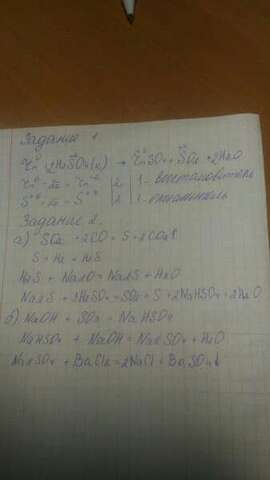 Задание 1
Zn⁰ + 2H₂SO₄(к) → Zn⁺²SO₄ + S⁺⁴O₂ + 2H₂O
Zn⁰ - 2e = Zn⁺² | 2 | 1 - восстановитель
S⁺⁶ + 2e = S⁺⁴ | 2 | 1 - окислитель
Задание 2.
а) SO₂ + 2CO = S + 2CO₂↑
S + H₂ = H₂S
H₂S + Na₂O = Na₂S + H₂O
Na₂S + 3H₂SO₄ = SO₂ + S + 2NaHSO₄ + 2H₂O
б) NaOH + SO₃ = NaHSO₄
NaHSO₄ + NaOH = Na₂SO₄ + H₂O
Na₂SO₄ + BaCl₂ = 2NaCl + BaSO₄↓